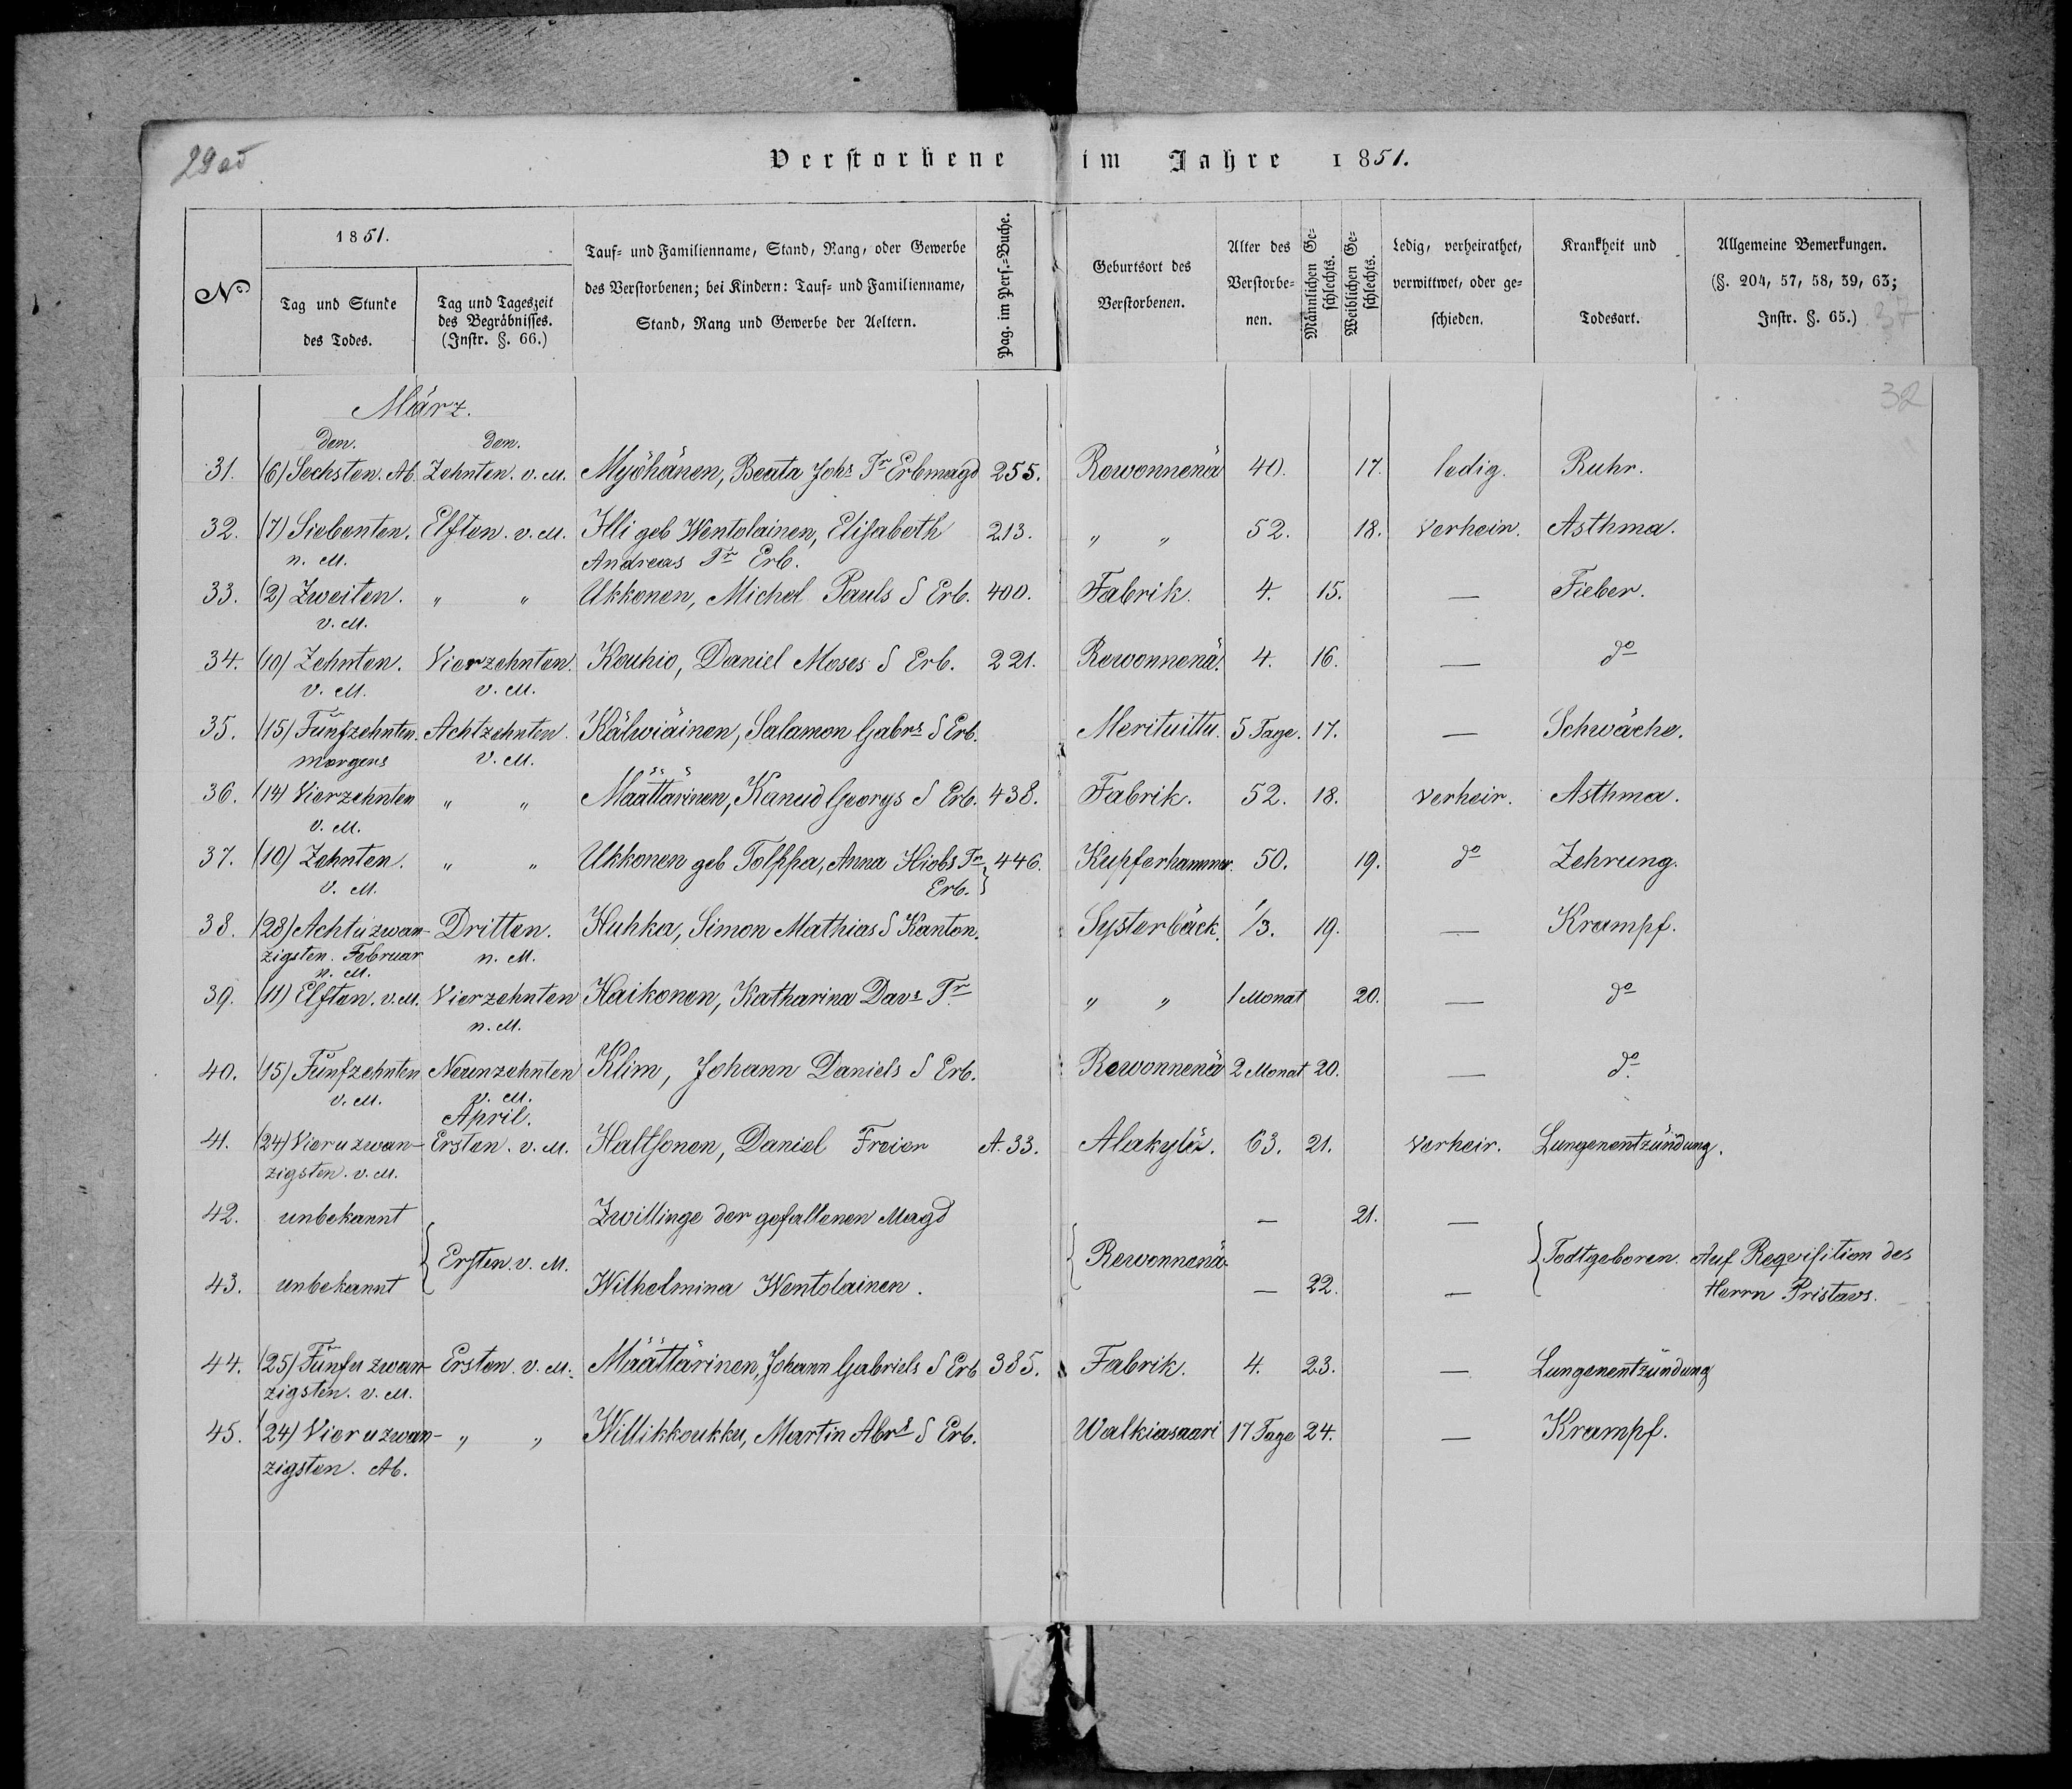 29 ad
Verstorbene im Jahre 1851.
№
1851.
Tag und Stunde des Todes.
Tag und Tageszeit des Begräbnisses. (Instr. §. 66.)
Tauf- und Familienname, Stand, Rang, oder Gewerbe
des Verstorbenen; bei Kindern: Tauf- und Familienname,
Stand, Rang und Gewerbe der Aeltern.
Pag. im Pers.-Buche.
Geburtsort des Verstorbenen.
Alter des Verstorbe-nen.
Männlichen Ge-schlechts.
Weiblichen Ge-schlechts.
Ledig, verheirathet, verwittwet, oder ge-schieden.
Krankheit und Todesart.
Allgemeine Bemerkungen.
(§. 204, 57, 58, 59, 63;
Instr. §. 65.) 37
32
März.
den. den.
31. (6) Sechsten. Ab. Zehnten. v. M. Myöhänen, Beata Johs Tr Erbmagd 255. Rewonnenä 40. 17. ledig. Ruhr.
32. (7) Siebenten. Elften. v. M. Illi geb Wentolainen, Elisabeth 213. " " 52. 18. verheir. Asthma.
n. M. Andreas Tr Erb.
33. (2) Zweiten. " " Ukkonen, Michel Pauls S Erb. 400. Fabrik. 4. 15. — Fieber.
v. M.
34. (10) Zehnten. Vierzehnten. Kouhio, Daniel Moses S Erb. 221. Rewonnenä. 4. 16. — do
v. M. v. M.
35. (15) Fünfzehnten. Achtzehnten. Kälwiäinen, Salamon Gabrs S Erb. Merituittu. 5 Tage. 17. — Schwäche.
morgens v. M.
36. (14) Vierzehnten " " Määttärinen, Kanud Georgs S Erb. 438. Fabrik. 52. 18. verheir. Asthma.
v. M.
37. (10) Zehnten. " " Ukkonen geb Tolppa, Anna Hiobs Tr 446. Kupferhammer. 50. 19. do Zehrung.
v. M. Erb.
38. (28) Achtuzwan- Dritten. Huhka, Simon Mathias S Kanton. Systerbäck. 1/3. 19. — Krampf.
zigsten. Februar n. M.
n. M.
39. (11) Elften. v. M. Vierzehnten Haikonen, Katharina Davs Tr " " 1 Monat 20. — do
n. M.
40. (15) Fünfzehnten Neunzehnten Klim, Johann Daniels S Erb. Rewonnenä 2 Monat 20. — do.
v. M. v. M.
April.
41. (24) Vieruzwan- Ersten. v. M. Haltsonen, Daniel Freier A. 33. Alakylä. 63. 21. verheir. Lungenentzündung.
zigsten. v. M.
42. unbekannt Zwillinge der gefallenen Magd — 21. —
Ersten. v. M. Rewonnenä. Todtgeboren. Auf Reqvisition des
43. unbekannt Wilhelmina Wentolainen. — 22. — Herrn Pristavs.
44. (25) Fünfu zwan- Ersten. v. M. Määttärinen, Johann Gabriels S Erb 385. Fabrik. 4. 23. — Lungenentzündung
zigsten. v. M.
45. (24) Vieruzwan- " " Willikkoukku, Martin Abrs S Erb. Walkiasaari 17 Tage 24. — Krampf.
zigsten. Ab.